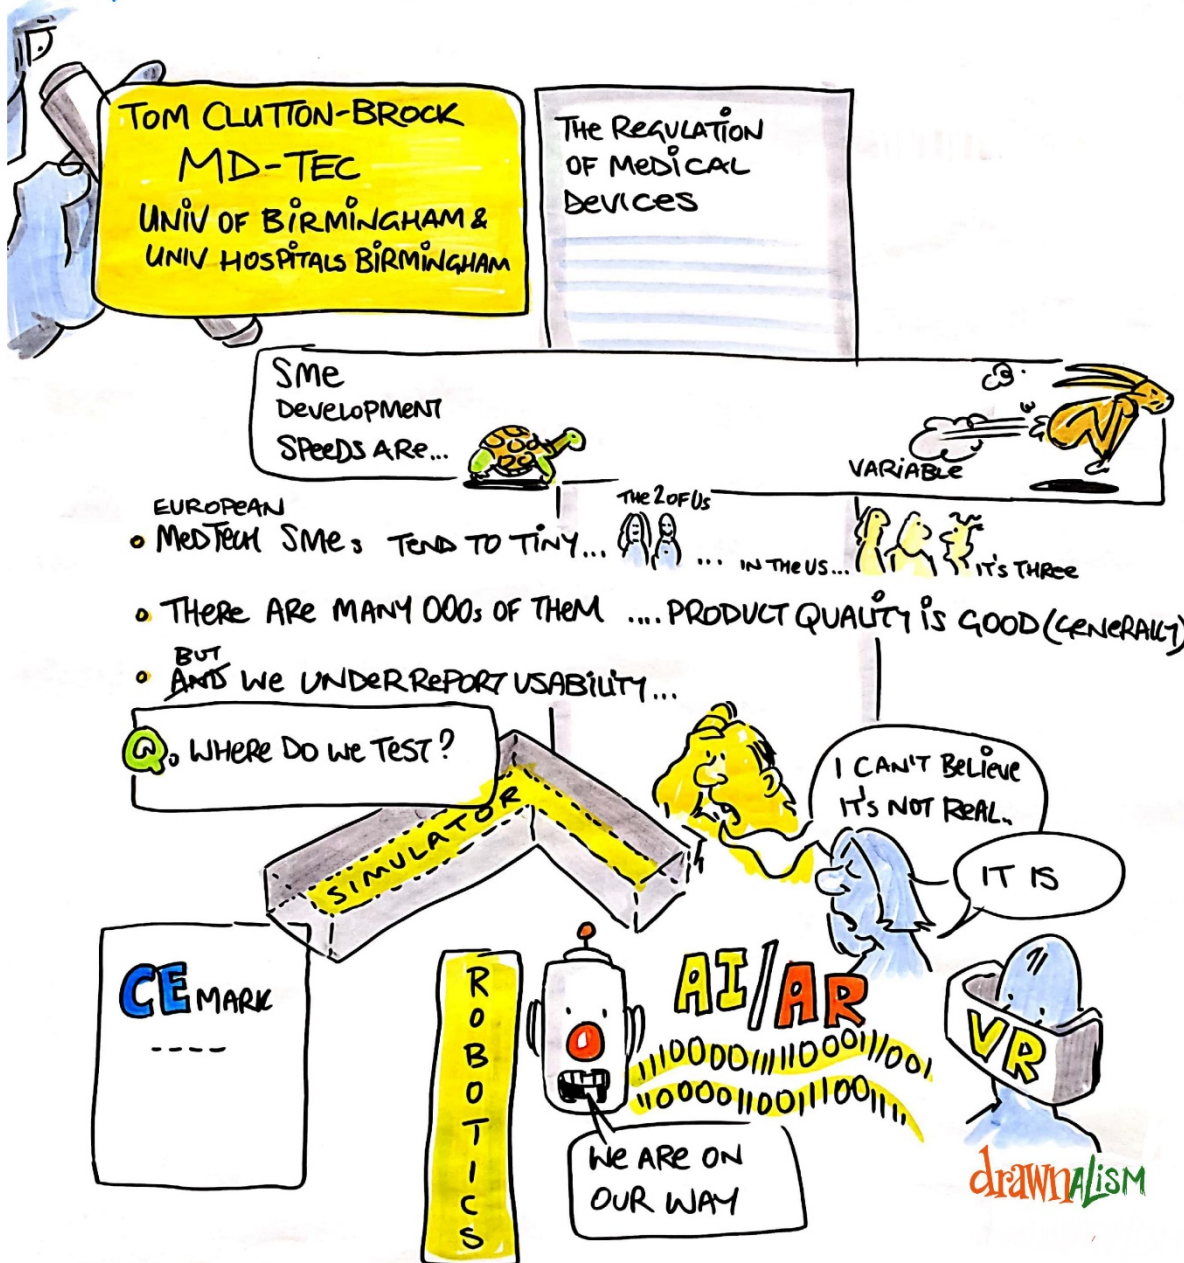 TOM CLUTTON-BROCK
MD-TEC
UNIV OF BIRMINGHAM &
UNIV HOSPITALS BIRMINGHAM
THE REGULATION
OF MEDICAL
DEVICES
SME
DEVELOPMENT
SPEEDS ARE...
VARIABLE
EUROPEAN
• MEDTECH SMEs TEND TO TINY... THE 2 OF US ... IN THE US... IT'S THREE
• THERE ARE MANY 000s OF THEM .... PRODUCT QUALITY IS GOOD (GENERALLY)
BUT
• AND WE UNDERREPORT USABILITY...
Q. WHERE DO WE TEST?
SIMULATOR
I CAN'T BELIEVE
IT'S NOT REAL.
IT IS
CE MARK
ROBOTICS
AI/AR
VR
WE ARE ON
OUR WAY
drawnalism